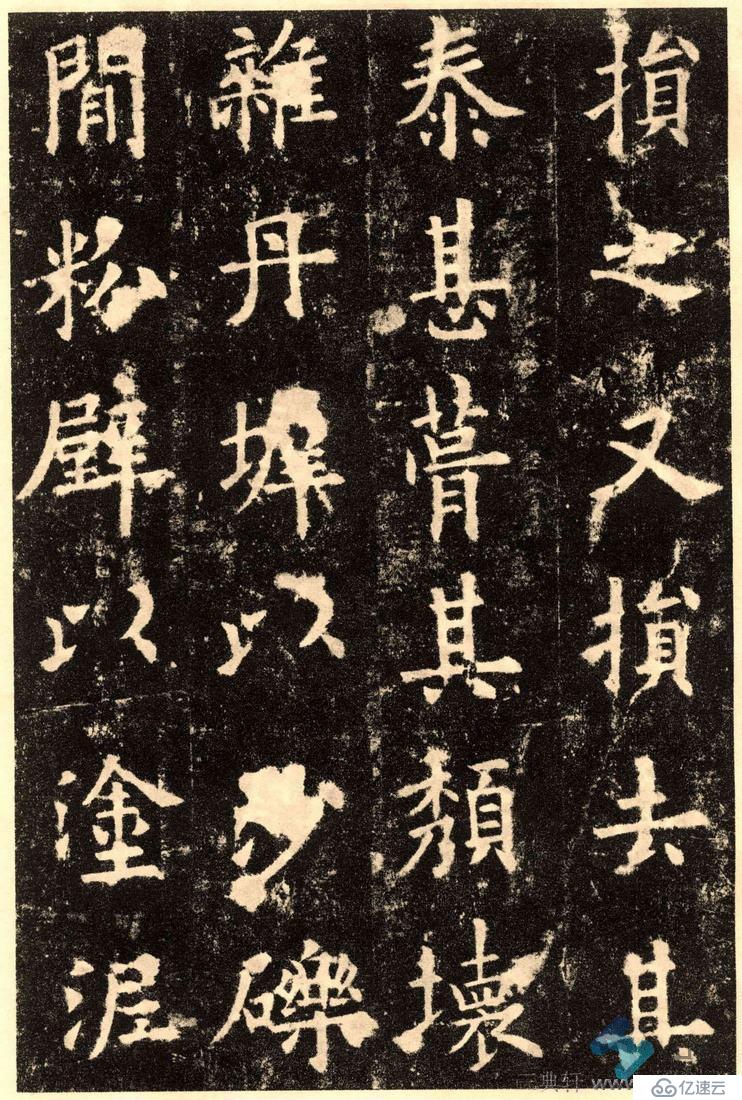 損之又損去其
泰甚葺其頹壞
雜丹墀以沙礫
閒粉壁以塗泥
典轩 www.
亿速云